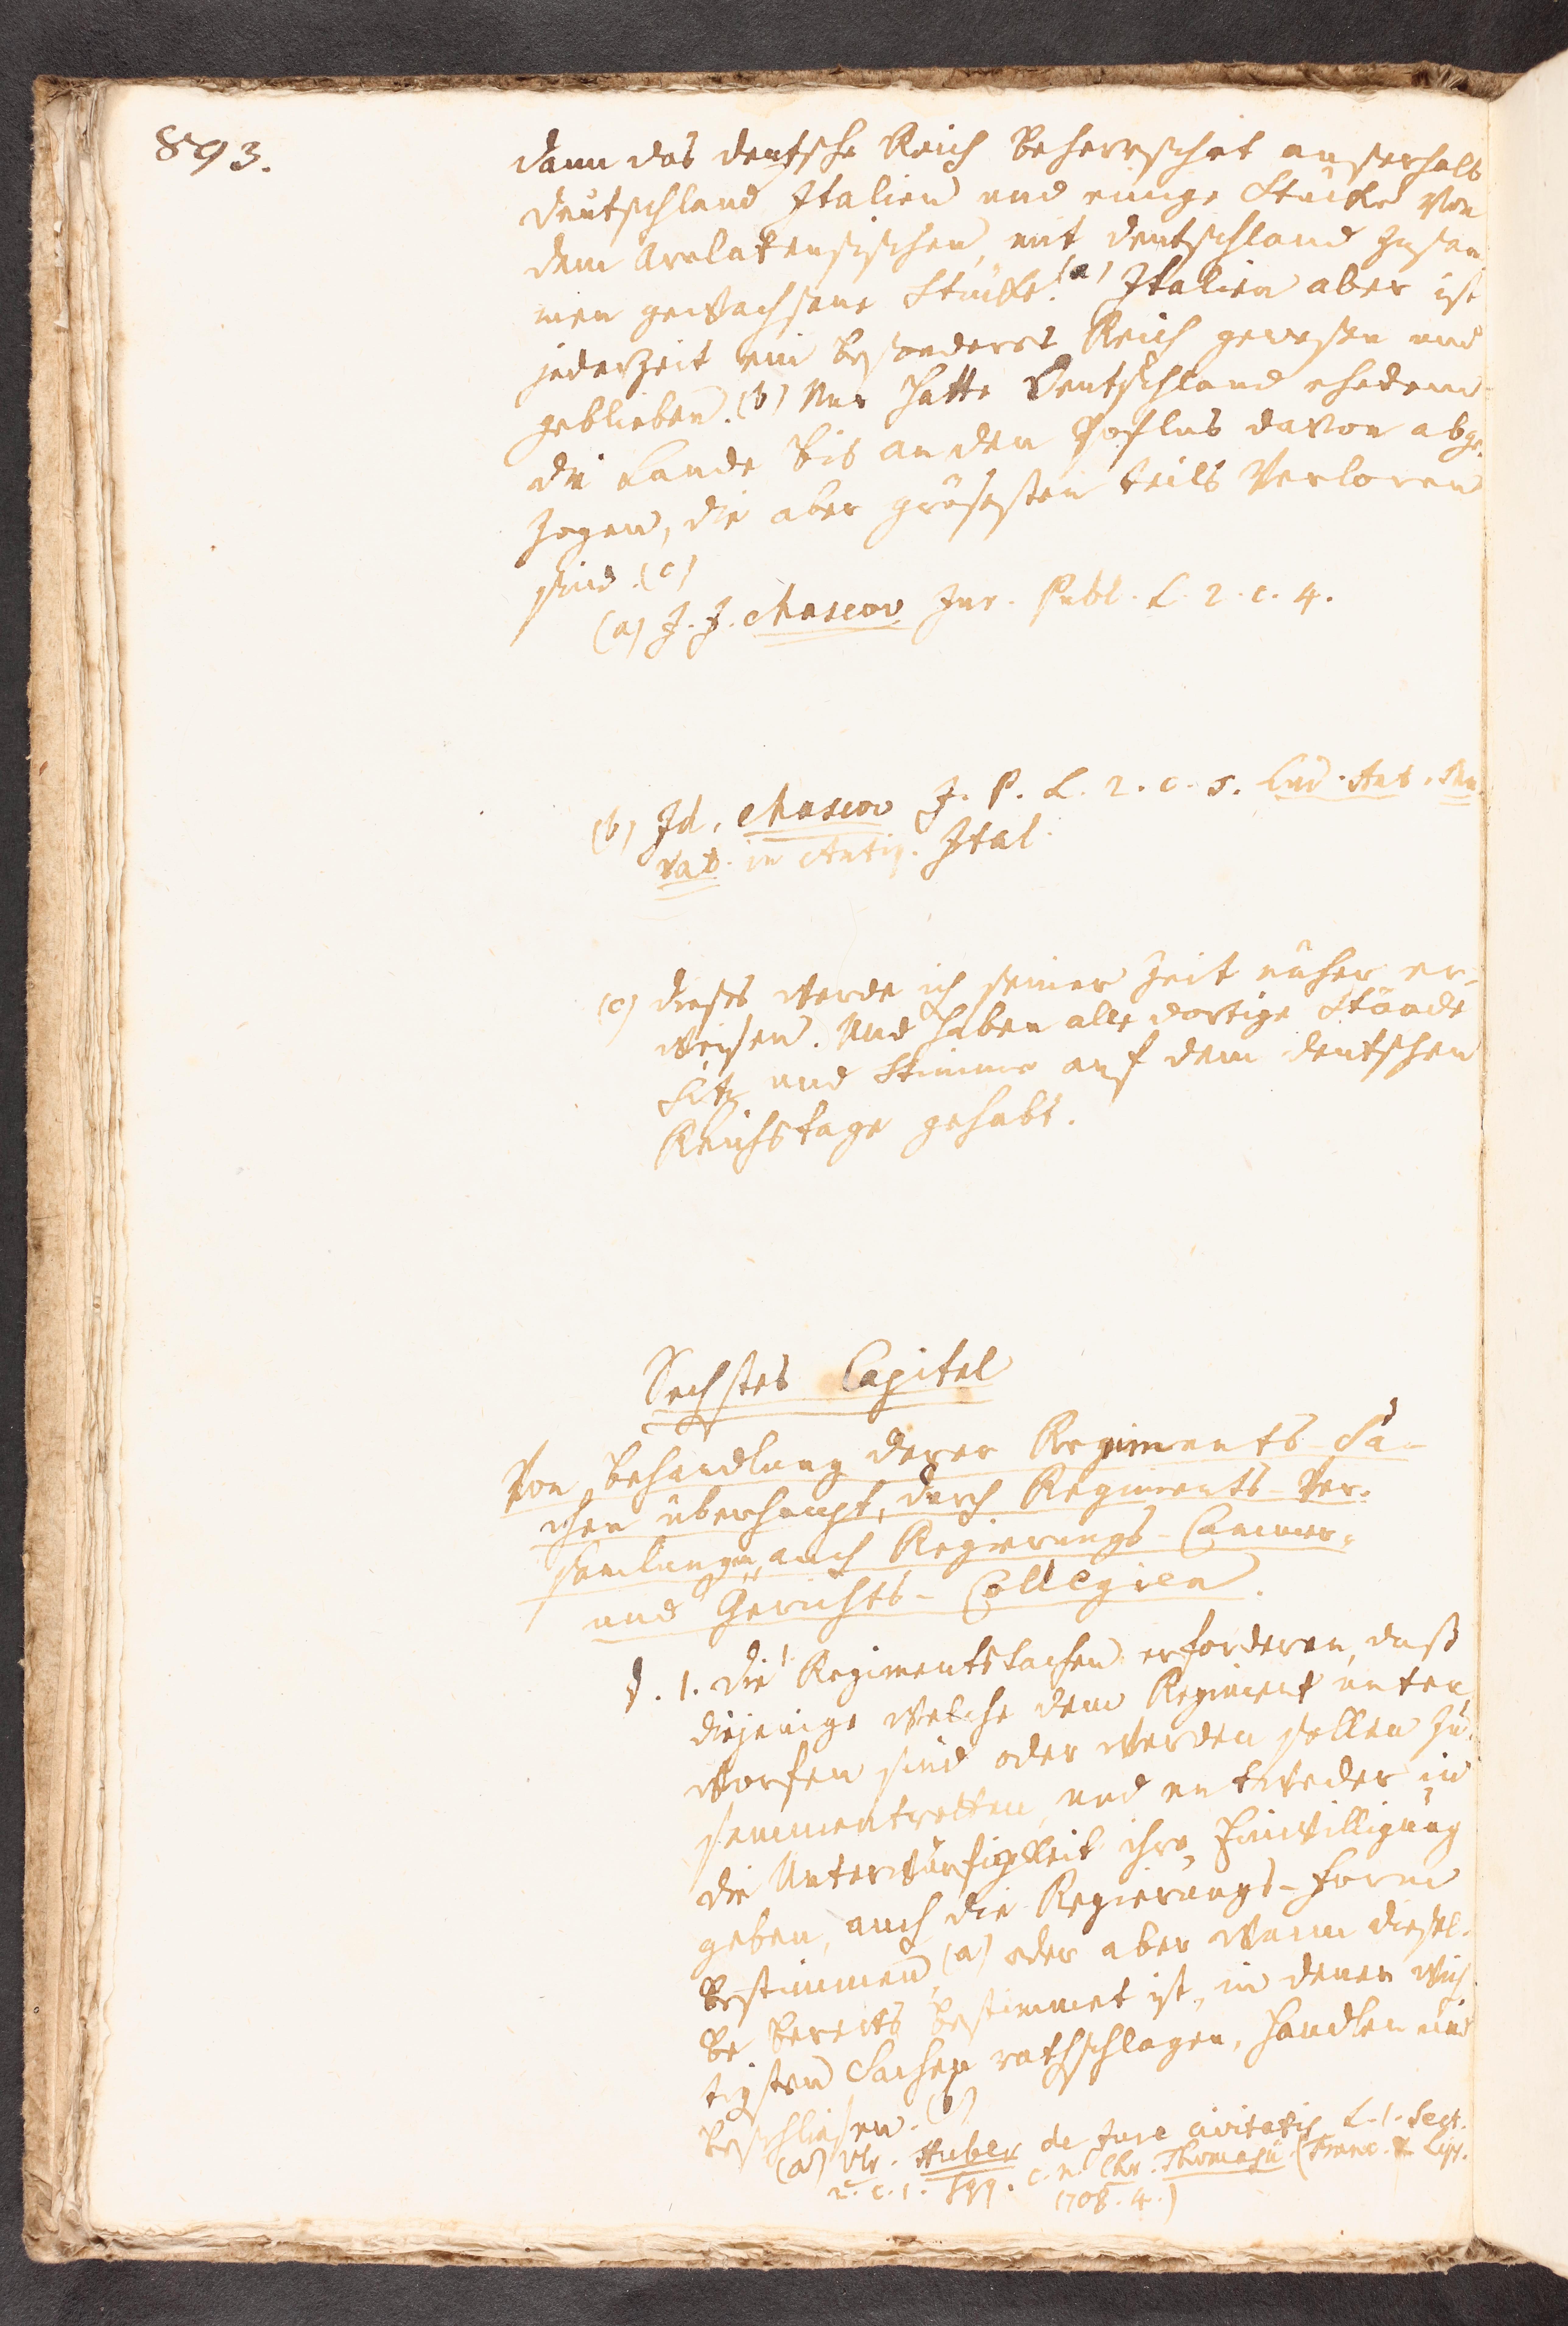 893.
dann das deutsche Reich beherrschet auserhalb
Deutschland Italien und einige Stücke von
dem Arelatensischen, mit Deutschland zusam-
men gewachsene Stücke. (a) Italien aber ist
jederzeit ein besonderes Reich gewesen und
geblieben. (b) Nur hatte Deutschland ehedem
die Lande bis an den davon abge-
zogen, die aber grösesten teils verloren
sind. (c)
(a) J. J. Mascov Jur. Publ. L. 2. c. 4.
(b) Id. Mascov J. P. L. 2. c. 5. Lud. Ant. Mu-
rat. in Antiq. Ital.
(c) dieses werde ich seiner Zeit näher er-
weisen. Und haben alle dortige Stände
Sitz und Stimme auf dem deutschen
Reichstage gehabt.
Sechstes Capitel
Von Behandlung derer Regiments-Sa-
chen überhaupt, durch Regiments-Ver-
samlungen, auch Regierungs-Cammer-
und Gerichts-Collegien.
§. 1. Die Regimentssachen erforderen, daß
diejenige welche dem Regiment unter-
worfen sind oder werden sollen zu-
sammentretten, und entweder in
die Unterwürfigkeit ihre Einwilligung
geben, auch die Regierungs-Form
bestimmen, (a) oder aber wann diesel-
be bereits bestimmet ist, in denen wich-
tigsten Sachen rathschlagen, handlen und
beschliesen. (b)
(a) Ulr. Huber de Jure civitatis L. 1. Sect.
2. c. 1. sqq. c. n. Chr. Thomasii (Franc. & Lips.
1708. 4.)